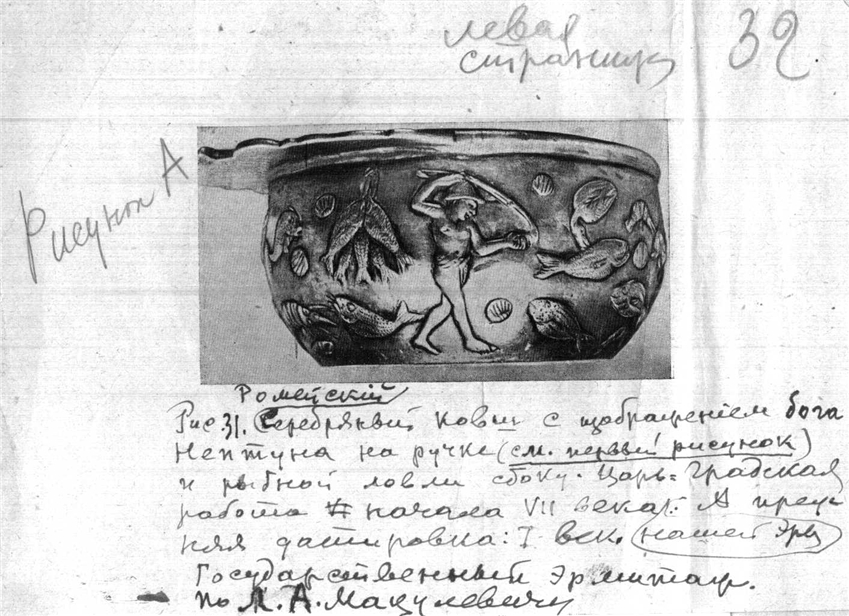 левая
страница
32
Рисунок А
Ромейский
Рис 31. Серебряный ковш с изображением бога
Нептуна на ручке (см. первый рисунок)
и рыбной ловли сбоку. Царь-Градская
работа начала VII века. А преж-
няя датировка: I век. нашей Эры
Государственный Эрмитаж.
по Л. А. Мацулевичу